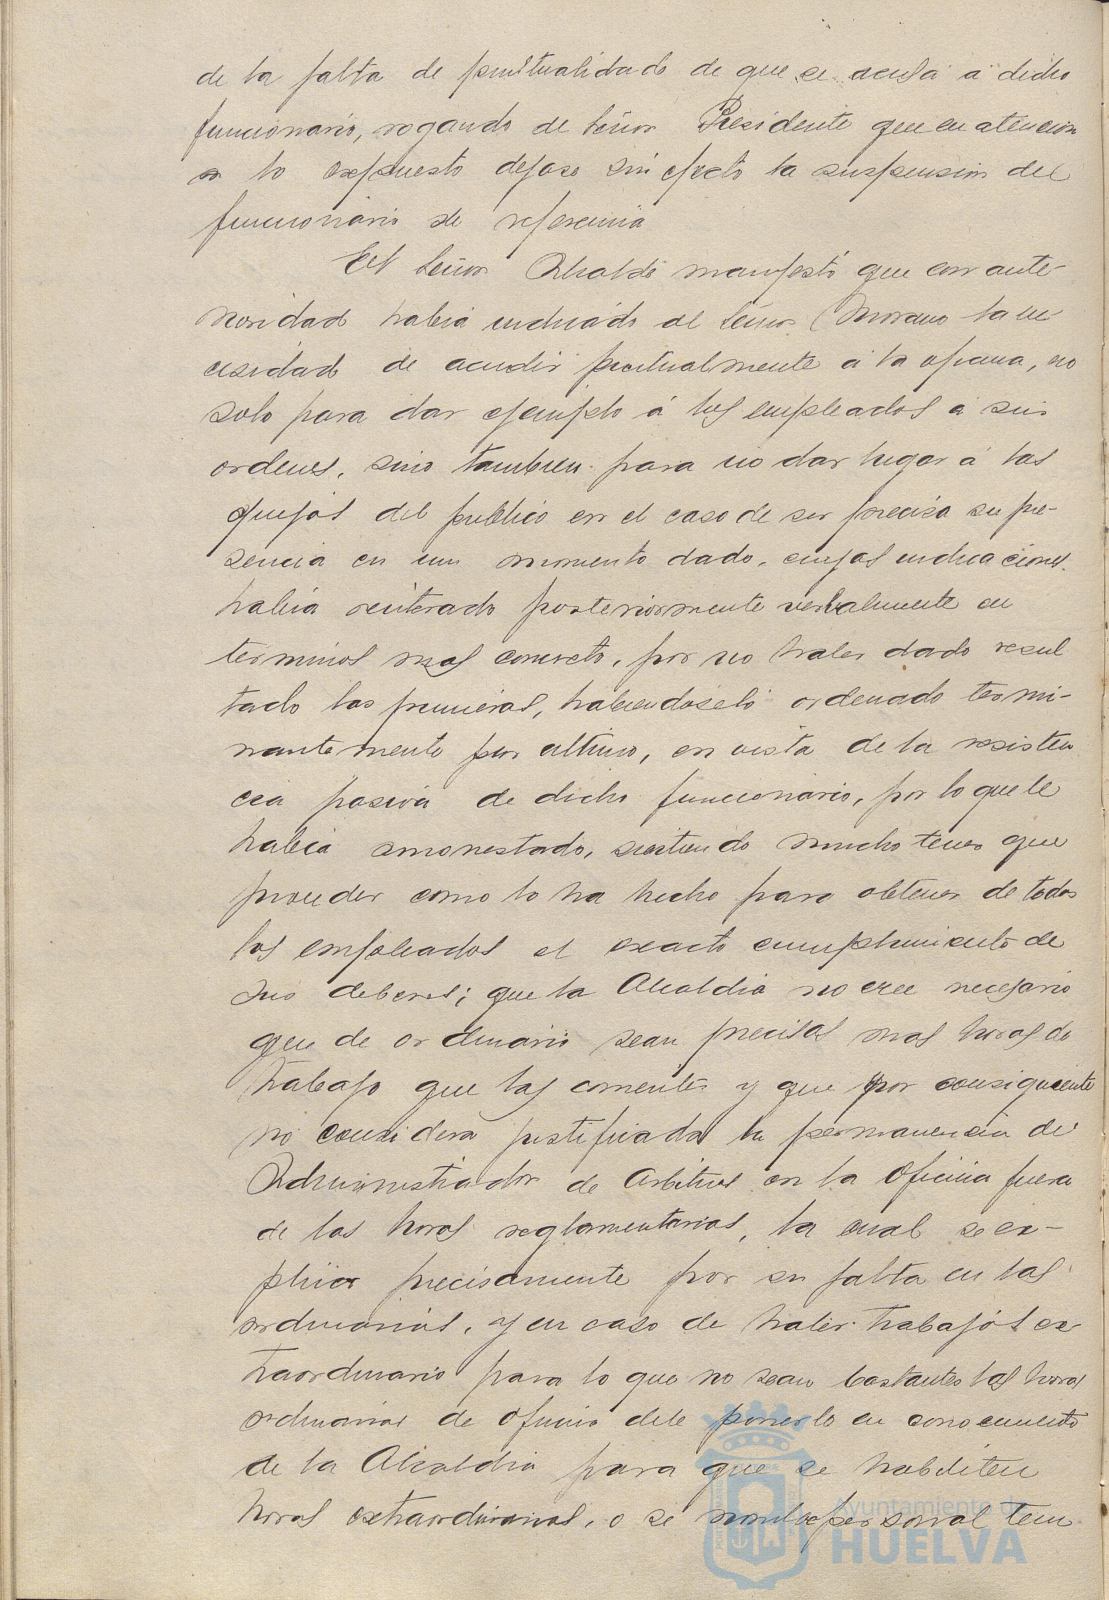 de la falta de puntualidad de que se acusa a dicho
funcionario, rogando de Señor Presidente que en atencion
a lo expuesto dejase sin efecto la suspension del
funcionario de referencia
El Señor Alcalde manifestó que con ante-
rioridad habia indicado al Señor Moreno la ne
cesidad de acudir puntualmente á la oficina, no
solo para dar ejemplo á los empleados a sus
ordenes, sino tambien para no dar lugar á las
quejas del publico en el caso de ser precisa su pre-
sencia en un momento dado, cuyas indicaciones
habia reiterado posteriormente verbalmente en
terminos mas concreto, por no haber dado resul
tado las primeras, habiendoselo ordenado termi-
nantemente por ultimo, en vista de la resisten
cia pasiva de dicho funcionario, por lo que le
habia amonestado, sintiendo mucho tener que
proceder como lo ha hecho para obtener de todos
los empleados el exacto cumplimiento de
sus deberes; que la Alcaldia no cree necesario
que de ordinario sean precisas mas horas de
trabajo que las corrientes y que por consiguiente
no considera justificada la permanencia del
Administrador de Arbitrios en la Oficina fuera
de las horas reglamentarias, la cual se ex-
plica precisamente por su falta en las
ordinarias, y en caso de haber trabajos ex
traordinario para lo que no sean bastantes las horas
ordinarias de oficina debe ponerlo en conocimiento
de la Alcaldia para que se habiliten
horas extraordinarias, o se nombre personal tem
Ayuntamiento de
HUELVA